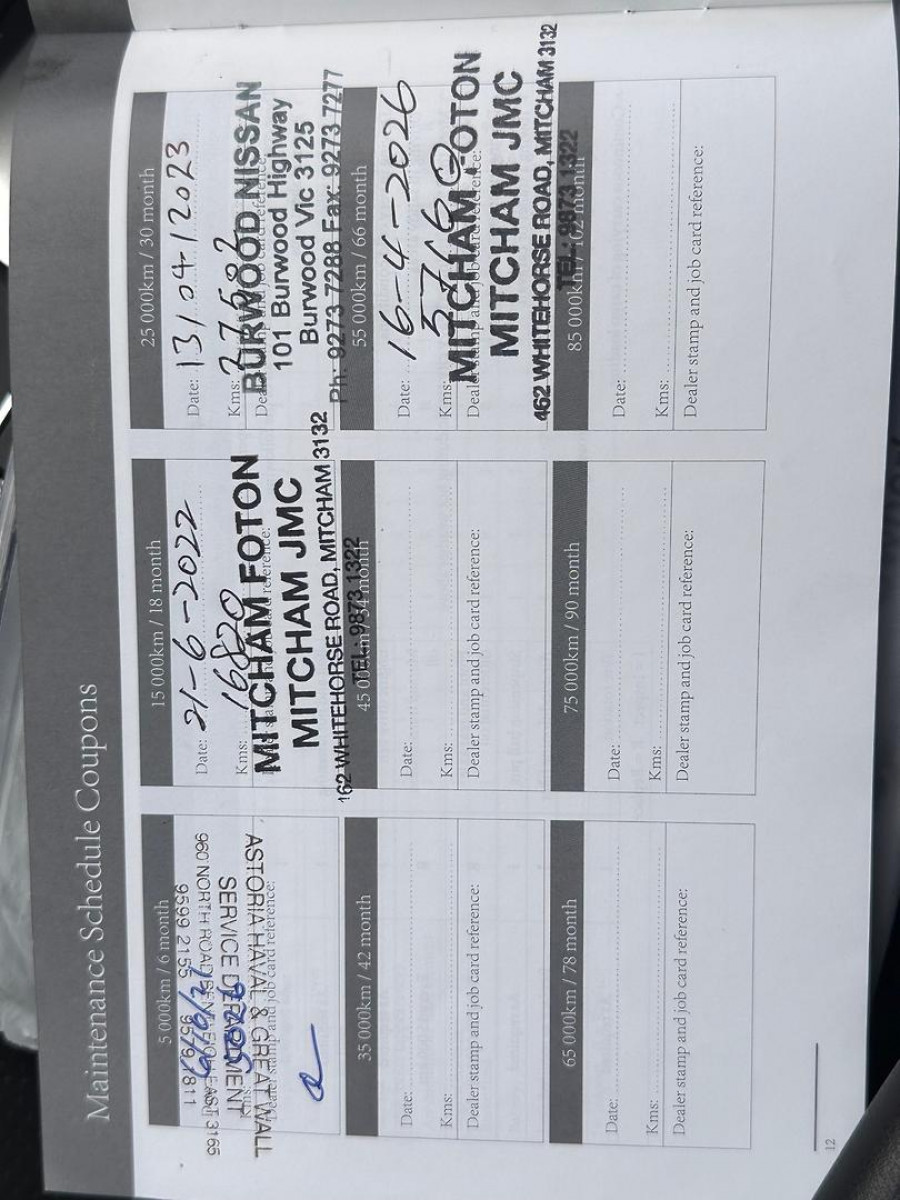 Maintenance Schedule Coupons
5 000km / 6 month
960 NORTH ROAD BENTLEIGH EAST 3165
9599 2155
SERVICE DEPARTMENT
ASTORIA HAVAL & GREAT WALL
Dealer stamp and job card reference:
15 000km / 18 month
Date: 21-6-2022
Kms: 16820
MITCHAM FOTON
MITCHAM JMC
462 WHITEHORSE ROAD, MITCHAM 3132
TEL: 9873 1322
25 000km / 30 month
Date: 13/04/2023
Kms:
BURWOOD NISSAN
101 Burwood Highway
Burwood Vic 3125
Ph: 9273 7288 Fax: 9273 7277
35 000km / 42 month
Date:
Kms:
Dealer stamp and job card reference:
45 000km / 54 month
Date:
Kms:
Dealer stamp and job card reference:
55 000km / 66 month
Date: 16-4-2026
Kms: 57160
MITCHAM FOTON
MITCHAM JMC
462 WHITEHORSE ROAD, MITCHAM 3132
TEL: 9873 1322
65 000km / 78 month
Date:
Kms:
Dealer stamp and job card reference:
75 000km / 90 month
Date:
Kms:
Dealer stamp and job card reference:
85 000km / 102 month
Date:
Kms:
Dealer stamp and job card reference:
12